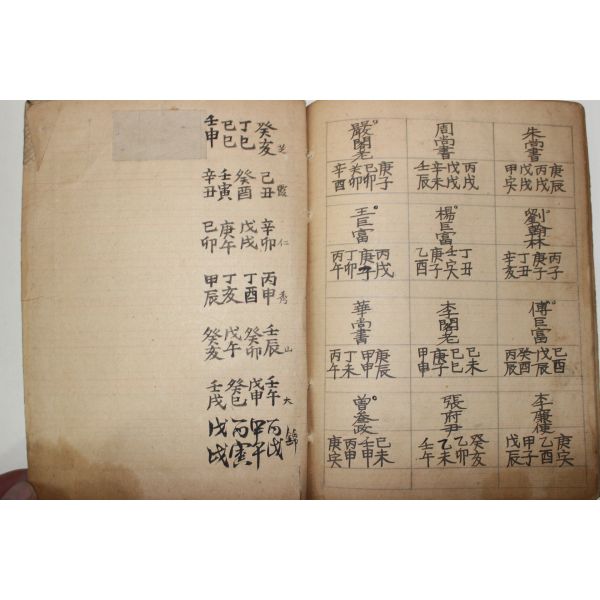 朱尚書
庚辰 丙戌 戊戌 甲寅
周尚書
丙戌 戊戌 辛未 壬辰
嚴閣老
庚子 己卯 癸卯 辛酉
劉翰林
丙子 庚子 丁亥 辛丑
楊巨富
丁丑 壬寅 庚子 乙酉
王巨富
丙戌 庚子 丁卯 丙午
傅巨富
己酉 戊辰 癸酉 丙辰
李閣老
己未 己巳 庚申 甲申
華尚書
庚辰 甲申 丁未 丙午
李廉使
庚寅 乙酉 甲子 戊辰
張府尹
癸亥 乙卯 乙未 壬午
曾參政
己未 壬申 丙申 庚寅
芝 癸亥 丁巳 己巳 壬申
霞 己丑 癸酉 壬寅 辛丑
仁 辛卯 戊戌 庚午 己卯
秀 丙申 丁酉 丁亥 甲辰
山 壬辰 癸卯 戊午 癸亥
大 壬午 戊申 癸巳 壬戌
錦 丙戌 甲午 丙寅 戊戌